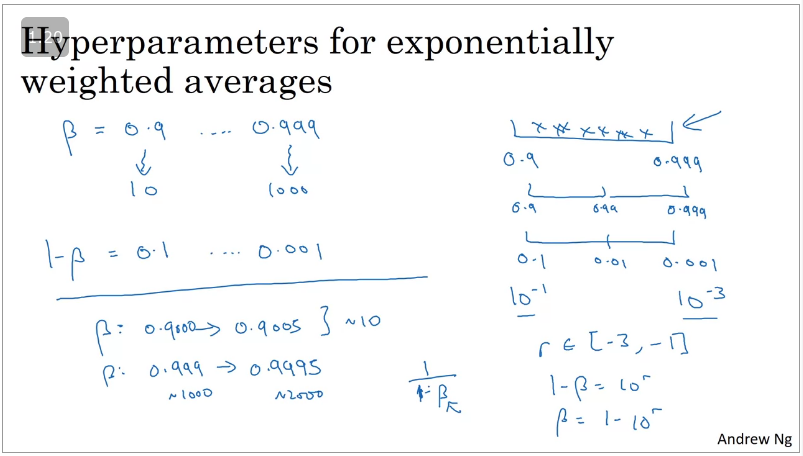 1.20
Hyperparameters for exponentially
weighted averages
β = 0.9 .... 0.999
10 1000
1-β = 0.1 .... 0.001
β: 0.9000 → 0.9005 } ~10
β: 0.999 → 0.9995
~1000 ~2000
1
1-β
x x x x x x
0.9 0.999
0.9 0.99 0.999
0.1 0.01 0.001
10^-1 10^-3
r ∈ [-3, -1]
1-β = 10^r
β = 1-10^r
Andrew Ng